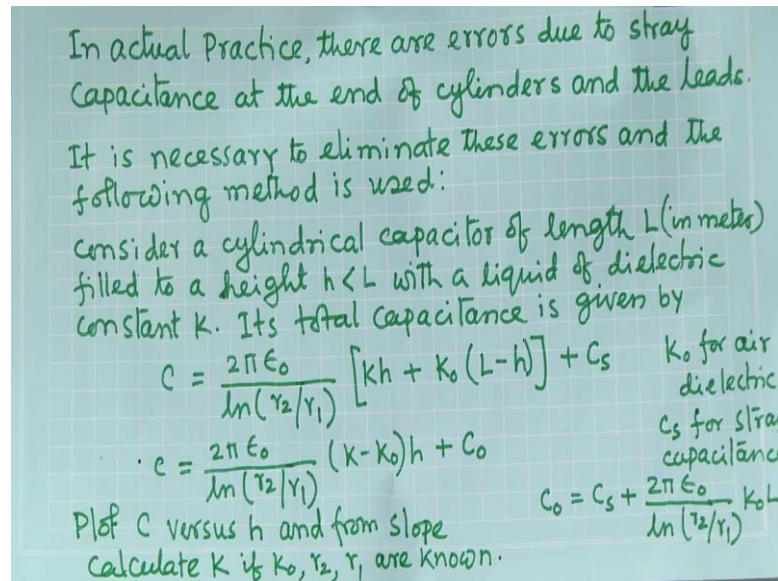 In actual Practice, there are errors due to stray
Capacitance at the end of cylinders and the leads.
It is necessary to eliminate these errors and the
following method is used:
Consider a cylindrical capacitor of length L (in meter)
filled to a height h < L with a liquid of dielectric
constant K. Its total capacitance is given by
C = 2π ε₀ / ln(r₂/r₁) [Kh + K₀ (L-h)] + Cs
K₀ for air
dielectric
Cs for
C = 2π ε₀ / ln(r₂/r₁) (K-K₀)h + C₀
C₀ = Cs + 2π ε₀ / ln(r₂/r₁) K₀L
Plot C versus h and from slope
calculate K if K₀, r₂, r₁ are known.